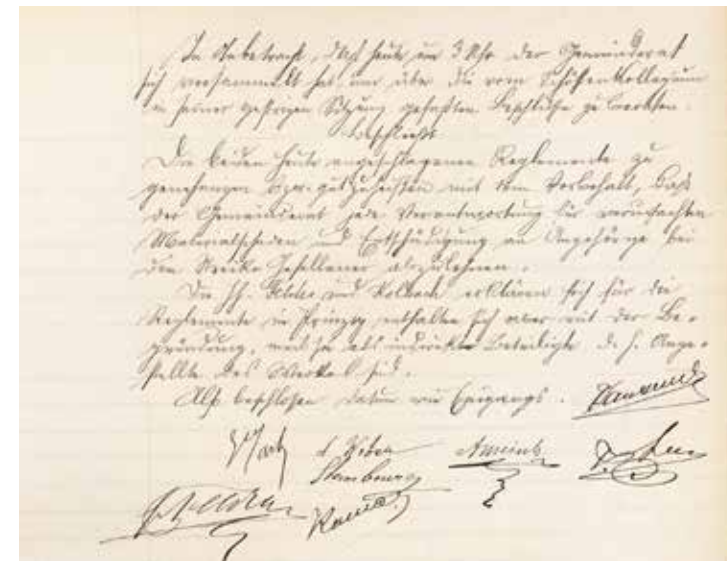 In Anbetracht, daß heute um 3 Uhr der Gemeinderat
sich versammelt hat, um über die vom Schöffenkollegium
in seiner gestrigen Sitzung gefaßten Beschlüße zu beraten.
beschließt
Die beiden heute angeschlagenen Reglemente zu
genehmigen bzw. gutzuheißen mit dem Vorbehalt, daß
der Gemeinderat jede Verantwortung für verursachten
Materialschaden und Entschädigung an Angehörige bei
den Streike Gefallener abzulehnen.
Die HH. und Kolbach erklären sich für die
Reglemente in Prinzip, enthalten sich aber mit der Be-
gründung, weil sie als indirekter Beteiligte d. h. Ange-
stellte des Werkes sind.
Also beschloßen Datum wie Eingangs.